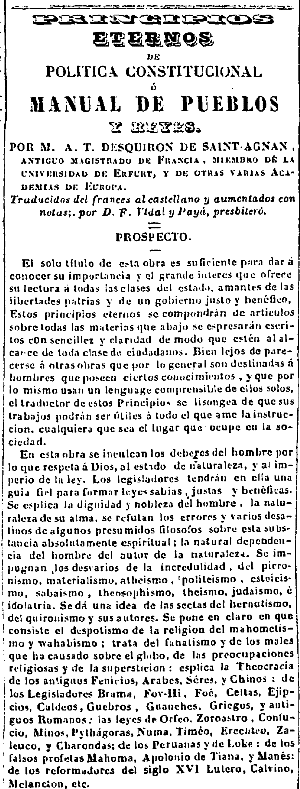 PRINCIPIOS
ETERNOS
DE
POLITICA CONSTITUCIONAL
ó
MANUAL DE PUEBLOS
Y REYES.
POR M. A. T. DESQUIRON DE SAINT-AGNAN,
ANTIGUO MAGISTRADO DE FRANCIA, MIEMBRO DE LA
UNIVERSIDAD DE ERFURT, Y DE OTRAS VARIAS ACA-
DEMIAS DE EUROPA.
Traducidos del frances al castellano y aumentados con
notas;. por D. F. Vidal y Payá, presbiteró.
PROSPECTO.
El solo título de esta obra es suficiente para dar á
conocer su importancia y el grande interes que ofrece
su lectura á todas las clases del estado, amantes de las
libertades patrias y de un gobierno justo y benéfico.
Estos principios eternos se compondrán de artículos
sobre todas las materias que abajo se espresarán escri-
tos con sencillez y claridad de modo que estén al al-
cance de toda clase de ciudadanos. Bien lejos de pare-
cerse á otras obras que por lo general son destinadas á
hombres que poseen ciertos conocimientos, y que por
lo mismo usan un lenguage comprensible de ellos solos,
el traductor de estos Principios se lisongea de que sus
trabajos podrán ser útiles á todo el que ame la instruc-
cion, cualquiera que sea el lugar que ocupe en la so-
ciedad.
En esta obra se inculcan los deberes del hombre por
lo que respeta á Dios, al estado de naturaleza, y al im-
perio de la ley. Los legisladores tendrán en ella una
guia fiel para formar leyes sabias, justas y benéficas.
Se esplica la dignidad y nobleza del hombre, la natu-
raleza de su alma, se refutan los errores y varios desa-
tinos de algunos presumidos filosofos sobre esta subs-
tancia absolutamente espiritual; la natural dependen-
cia del hombre del autor de la naturaleza. Se im-
pugnan los desvarios de la incredulidad, del pirro-
nismo, materialismo, atheismo, politeismo, estoicis-
mo, sabaismo, theosophismo, theismo, judaismo, é
idolatria. Se dá una idea de las sectas del hernutismo,
del quironismo y sus autores. Se pone en claro en que
consiste el despotismo de la religion del mahometis-
mo y wahabismo; trata del fanatismo y de los males
que ha causado sobre el globo, de las preocupaciones
religiosas y de la supersticion: esplica la Theocracia
de los antiguos Fenicios, Arabes, Séres, y Chinos: de
los Legisladores Brama, Fov-Hi, Foé, Celtas, Ejip-
cios, Caldeos, Guebros, Guanches, Griegos, y anti-
guos Romanos: las leyes de Orfeo, Zoroastro, Confu-
cio, Minos, Pythágoras, Numa, Timéo, Erecteo, Za-
leuco, y Charondas; de los Peruanas y de Loke: de los
falsos profetas Mahoma, Apolonio de Tiana, y Manés:
de los reformadores del siglo XVI Lutero, Calvino,
Melancton, etc.